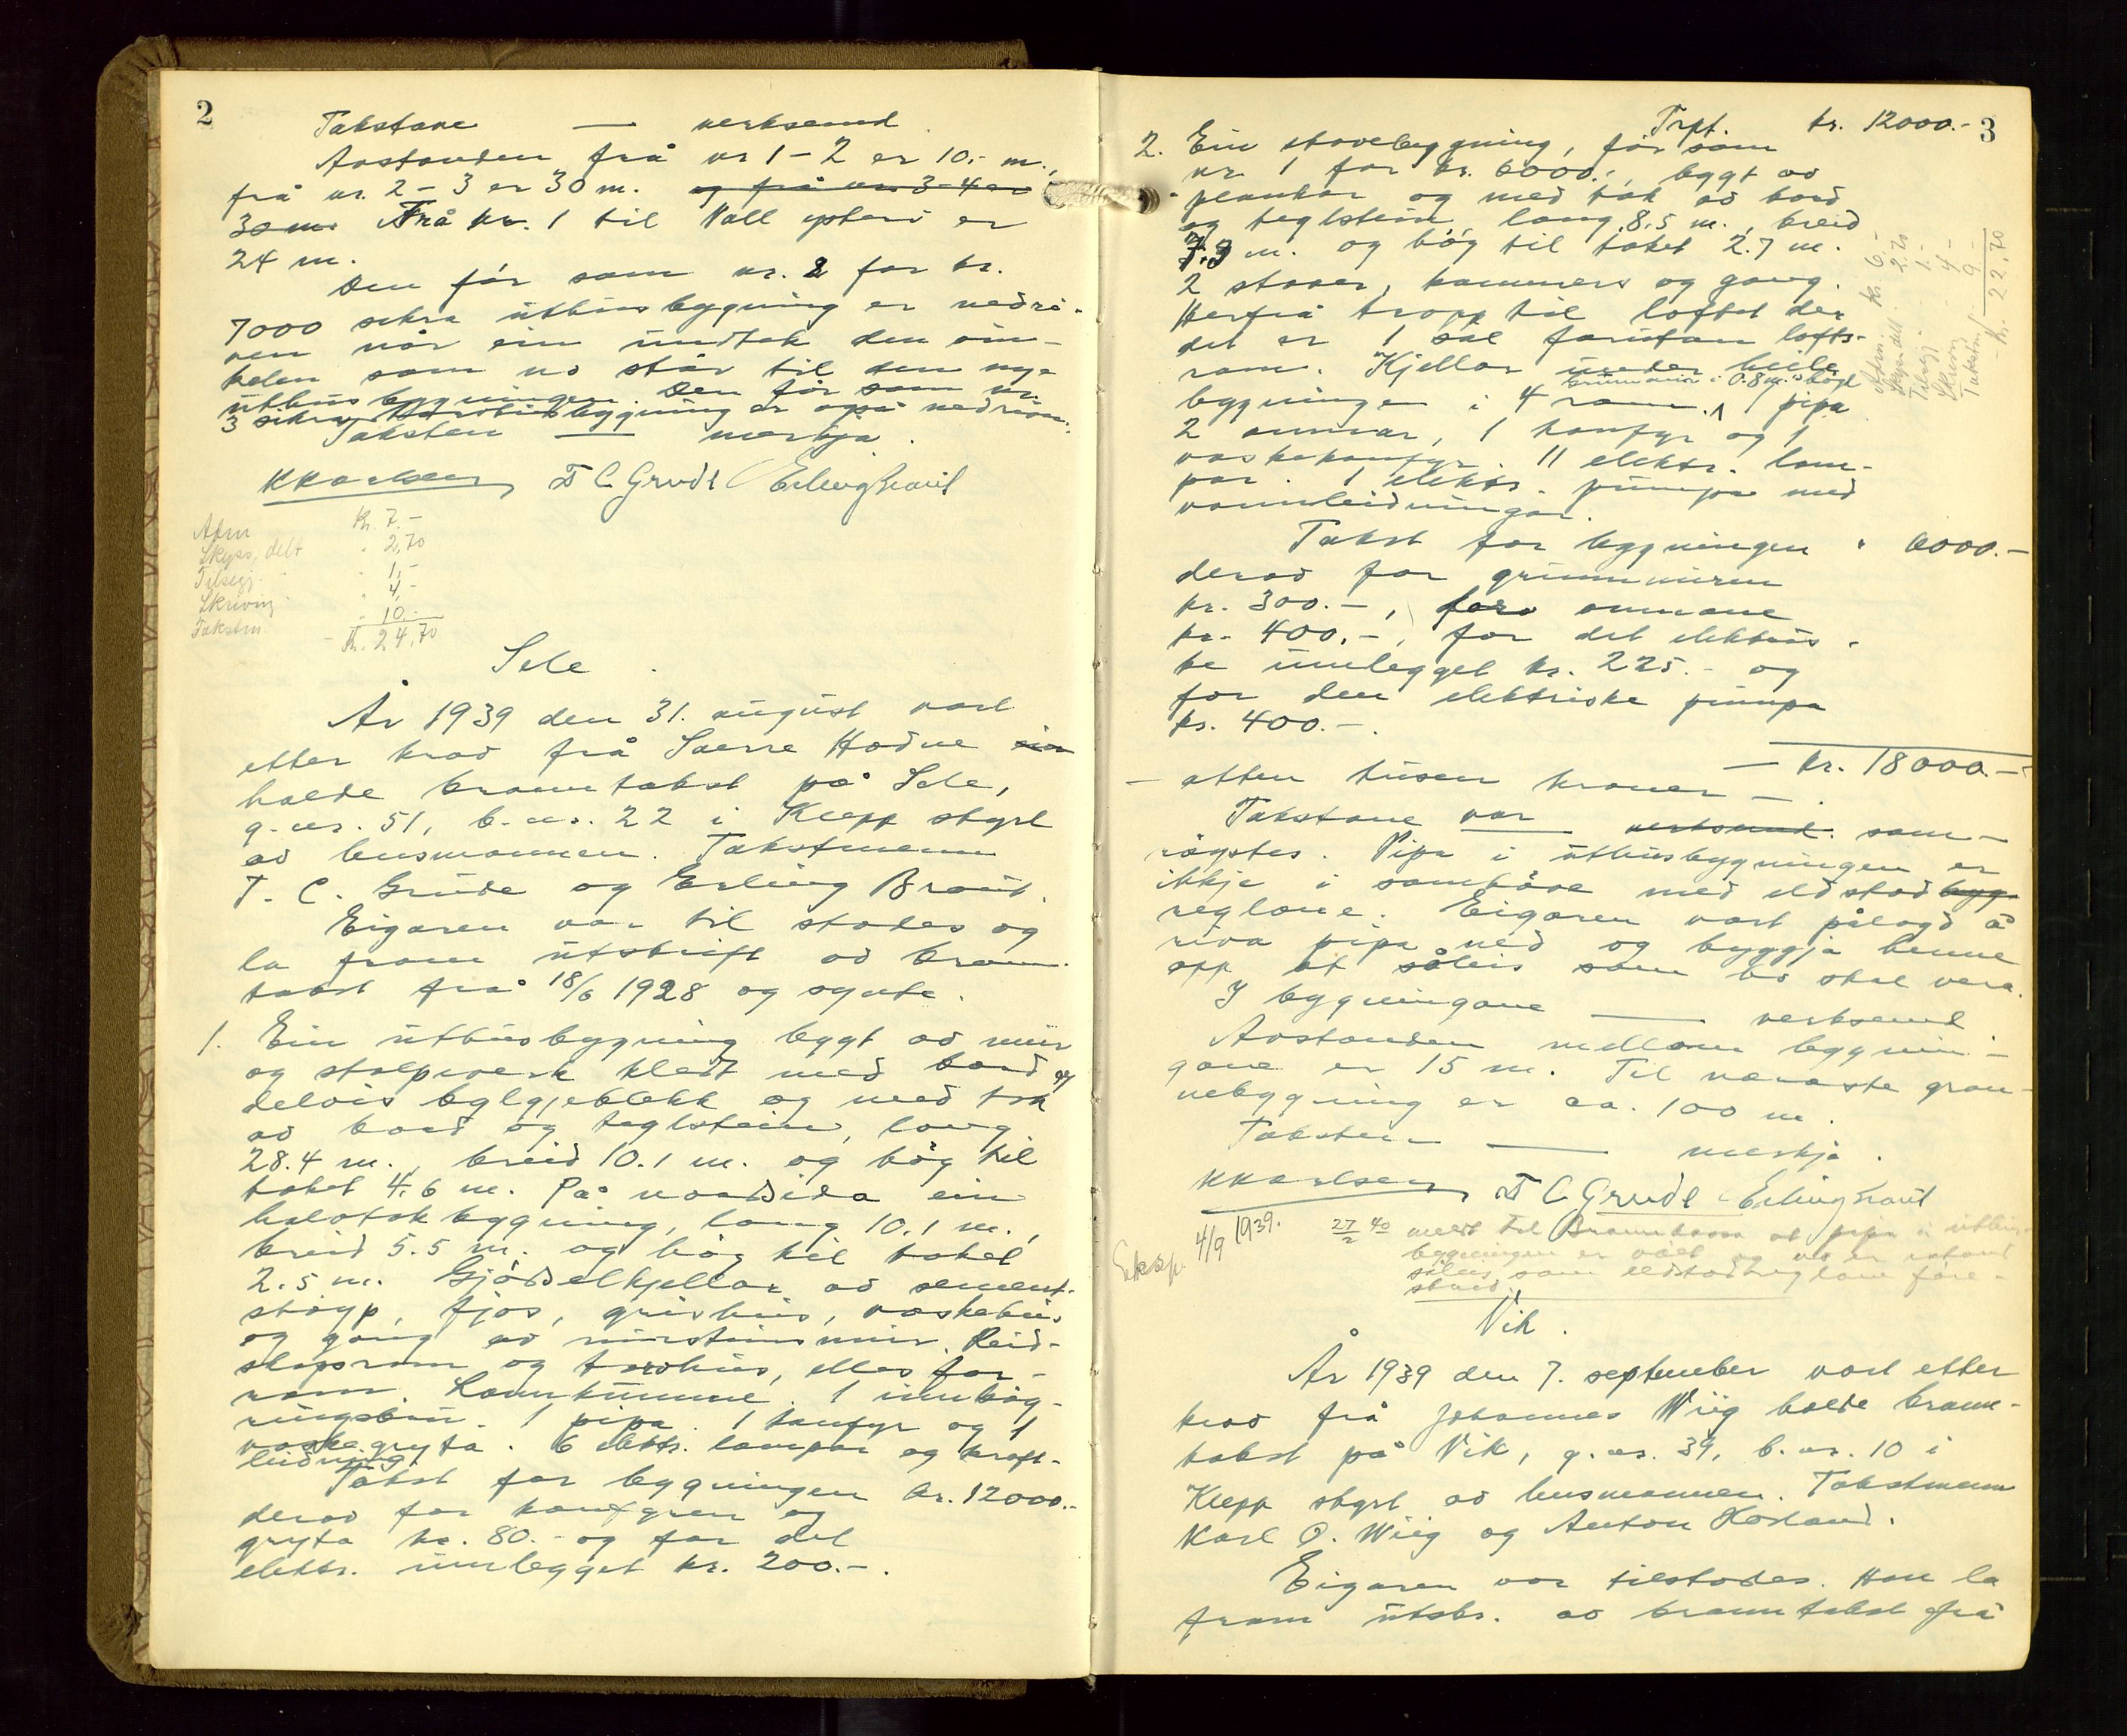 2
Takstane — verksemd.
Avstanden frå nr 1-2 er 10,- m.,
frå nr. 2-3 er 30 m. og frå nr. 3-4 er
30 m. Frå nr. 1 til Voll ysteri er
24 m.
Den før som nr. 2 for kr.
7000 sikra uthusbygning er nedri-
ven når ein undtek den vin-
kelen som no står til den nye
uthusbygningen. Den før som nr.
3 sikra bygning er også nedriven.
Taksten — merkja.
KKarlsen T C Grude Erling Braut
Adm Kr. 7.-
Skyss, delt " 2,70
Tilsegj. " 1,-
Skriving " 4,-
Takstm. " 10.-
Kr. 24,70
Sele.
År 1939 den 31. august vart
etter krav frå Sverre Hodne ein
halde branntakst på Sele,
g.nr. 51, b.nr. 22 i Klepp styrt
av lensmannen. Takstmenn
T. C. Grude og Erling Braut.
Eigaren var til stades og
la fram utskrift av brann-
takst frå 18/6 1928 og synte.
1. Ein uthusbygning bygt av mur
og stolpverk kledt med bord og
delvis bylgjeblekk og med tak
av bord og teglstein, lang
28.4 m., breid 10.1 m. og høg til
taket 4.6 m. På nordsida ein
halvtakbygning, lang 10.1 m.,
breid 5.5 m. og høg til taket
2.5 m. Gjødselkjellar av sement-
støyp, fjos, grishus, vaskehus
og gang av mursteinsmur. Reid-
skapsrom og torvhus, elles for-
rom. Landkumme. 1 innkøy-
ringsbru. 1 pipa. 1 konfyr og 1
vaskegryta. 6 elektr. lampar og kraft-
leidning.
Takst for bygningen kr. 12000.-
derav for konfyren og
gryta kr. 80.- og for det
elektr. innlegget kr. 200.-.
3
Trpt. kr. 12000.-
2. Ein stovebygning, før som
nr 1 for kr. 6000.-, bygt av
plankar og med tak av bord
og teglstein, lang 8,5 m., breid
7.3 m. og høg til taket 2.7 m.
2 stover, kammers og gang.
Herfrå tropp til loftet der
det er 1 sal foruten lofts-
rom. Kjellar under heile
bygningen i 4 rom. 1 pipa
grunnmur i 0.8 m. høgd
2 omnar, 1 konfyr og 1
vaskekonfyr. 11 elektr. lam-
par. 1 elektr. pumpe med
vannleidningar.
Takst for bygningen " 6000.-
derav for grunnmuren
kr. 300.-, for omnane
kr. 400.-, for det elektris-
ke innlegget kr. 225.- og
for den elektriske pumpa
kr. 400.-.
Kr. 6.-
Skyss delt " 2.70
Tilsegj. " 1.-
Skriving " 4.-
Takstm. " 9.-
Kr. 22,70
— kr. 18000.-
— atten tusen kroner —.
Takstane var verksemd. sam-
røystes. Pipa i uthusbygningen er
ikkje i samhøve med eldstad byg
reglane. Eigaren vart pålagd å
riva pipa ned og byggja henne
opp at såleis som ho skal vera.
I bygningane — verksemd.
Avstanden mellom bygnin-
gane er 15 m. Til næraste gran-
nebygning er ca. 100 m.
Taksten — merkja.
KKarlsen T C Grude Erling Braut
Eksp. 4/9 1939.
27/2 40 meldt til Brannkassa at pipa i uthus-
bygningen er no er i stand
såleis som eldstadreglane føre-
skriv.
Vik.
År 1939 den 7. september vart etter
krav frå Johannes Wiig halde brann-
takst på Vik, g.nr. 39, b.nr. 10 i
Klepp styrt av lensmannen. Takstmenn
Karl O. Wiig og Anton Horland.
Eigaren var tilstades. Han la
fram utskr. av branntakst frå